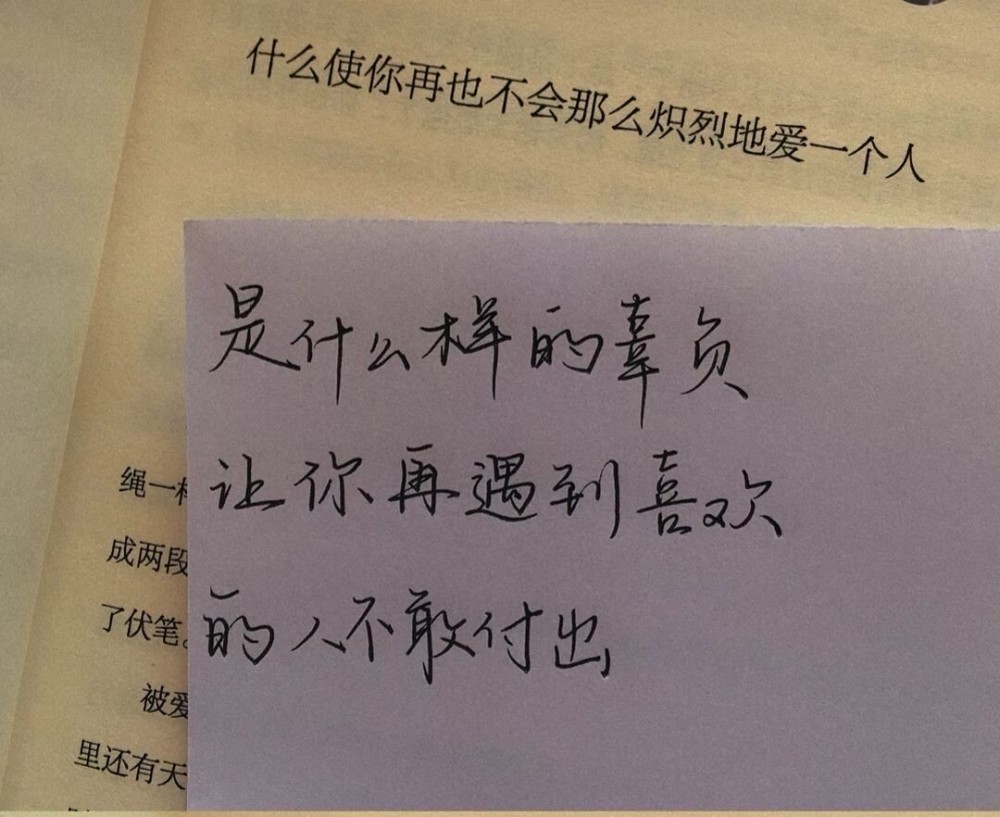 什么使你再也不会那么炽烈地爱一个人
是什么样的辜负
让你再遇到喜欢
的人不敢付出
绳一
成两段
了伏笔。
被爱
里还有天